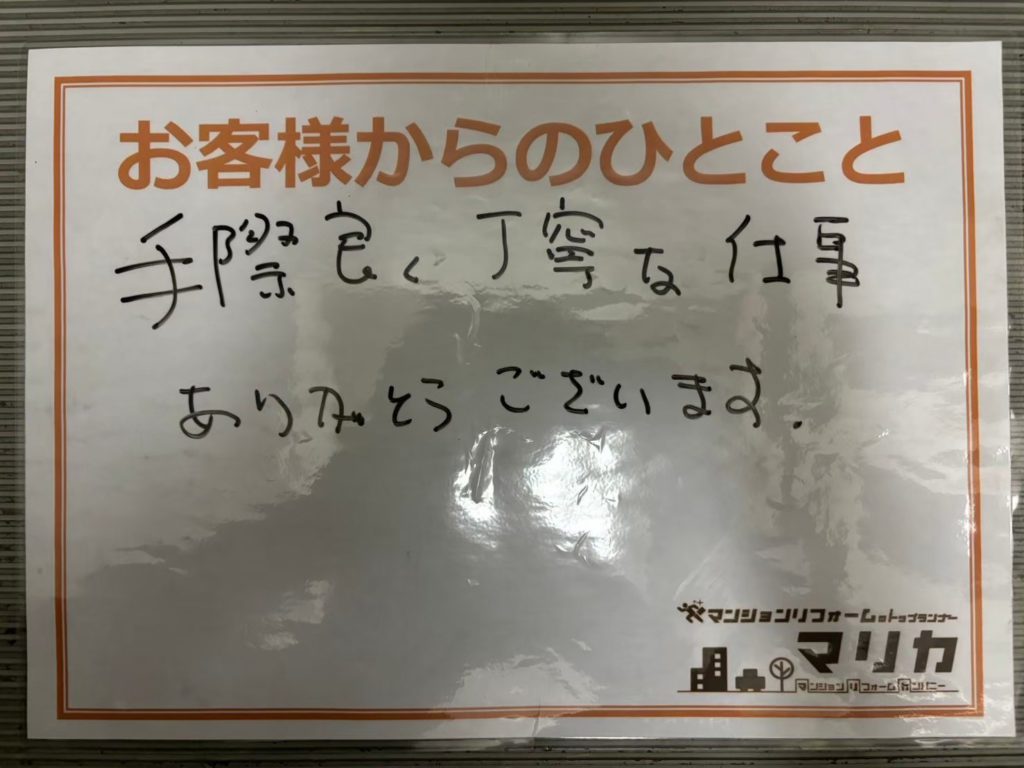 お客様からのひとこと
手際良く丁寧な仕事
ありがとうございます.
マンションリフォームのトップランナー
マリカ
マンションリフォームカンパニー